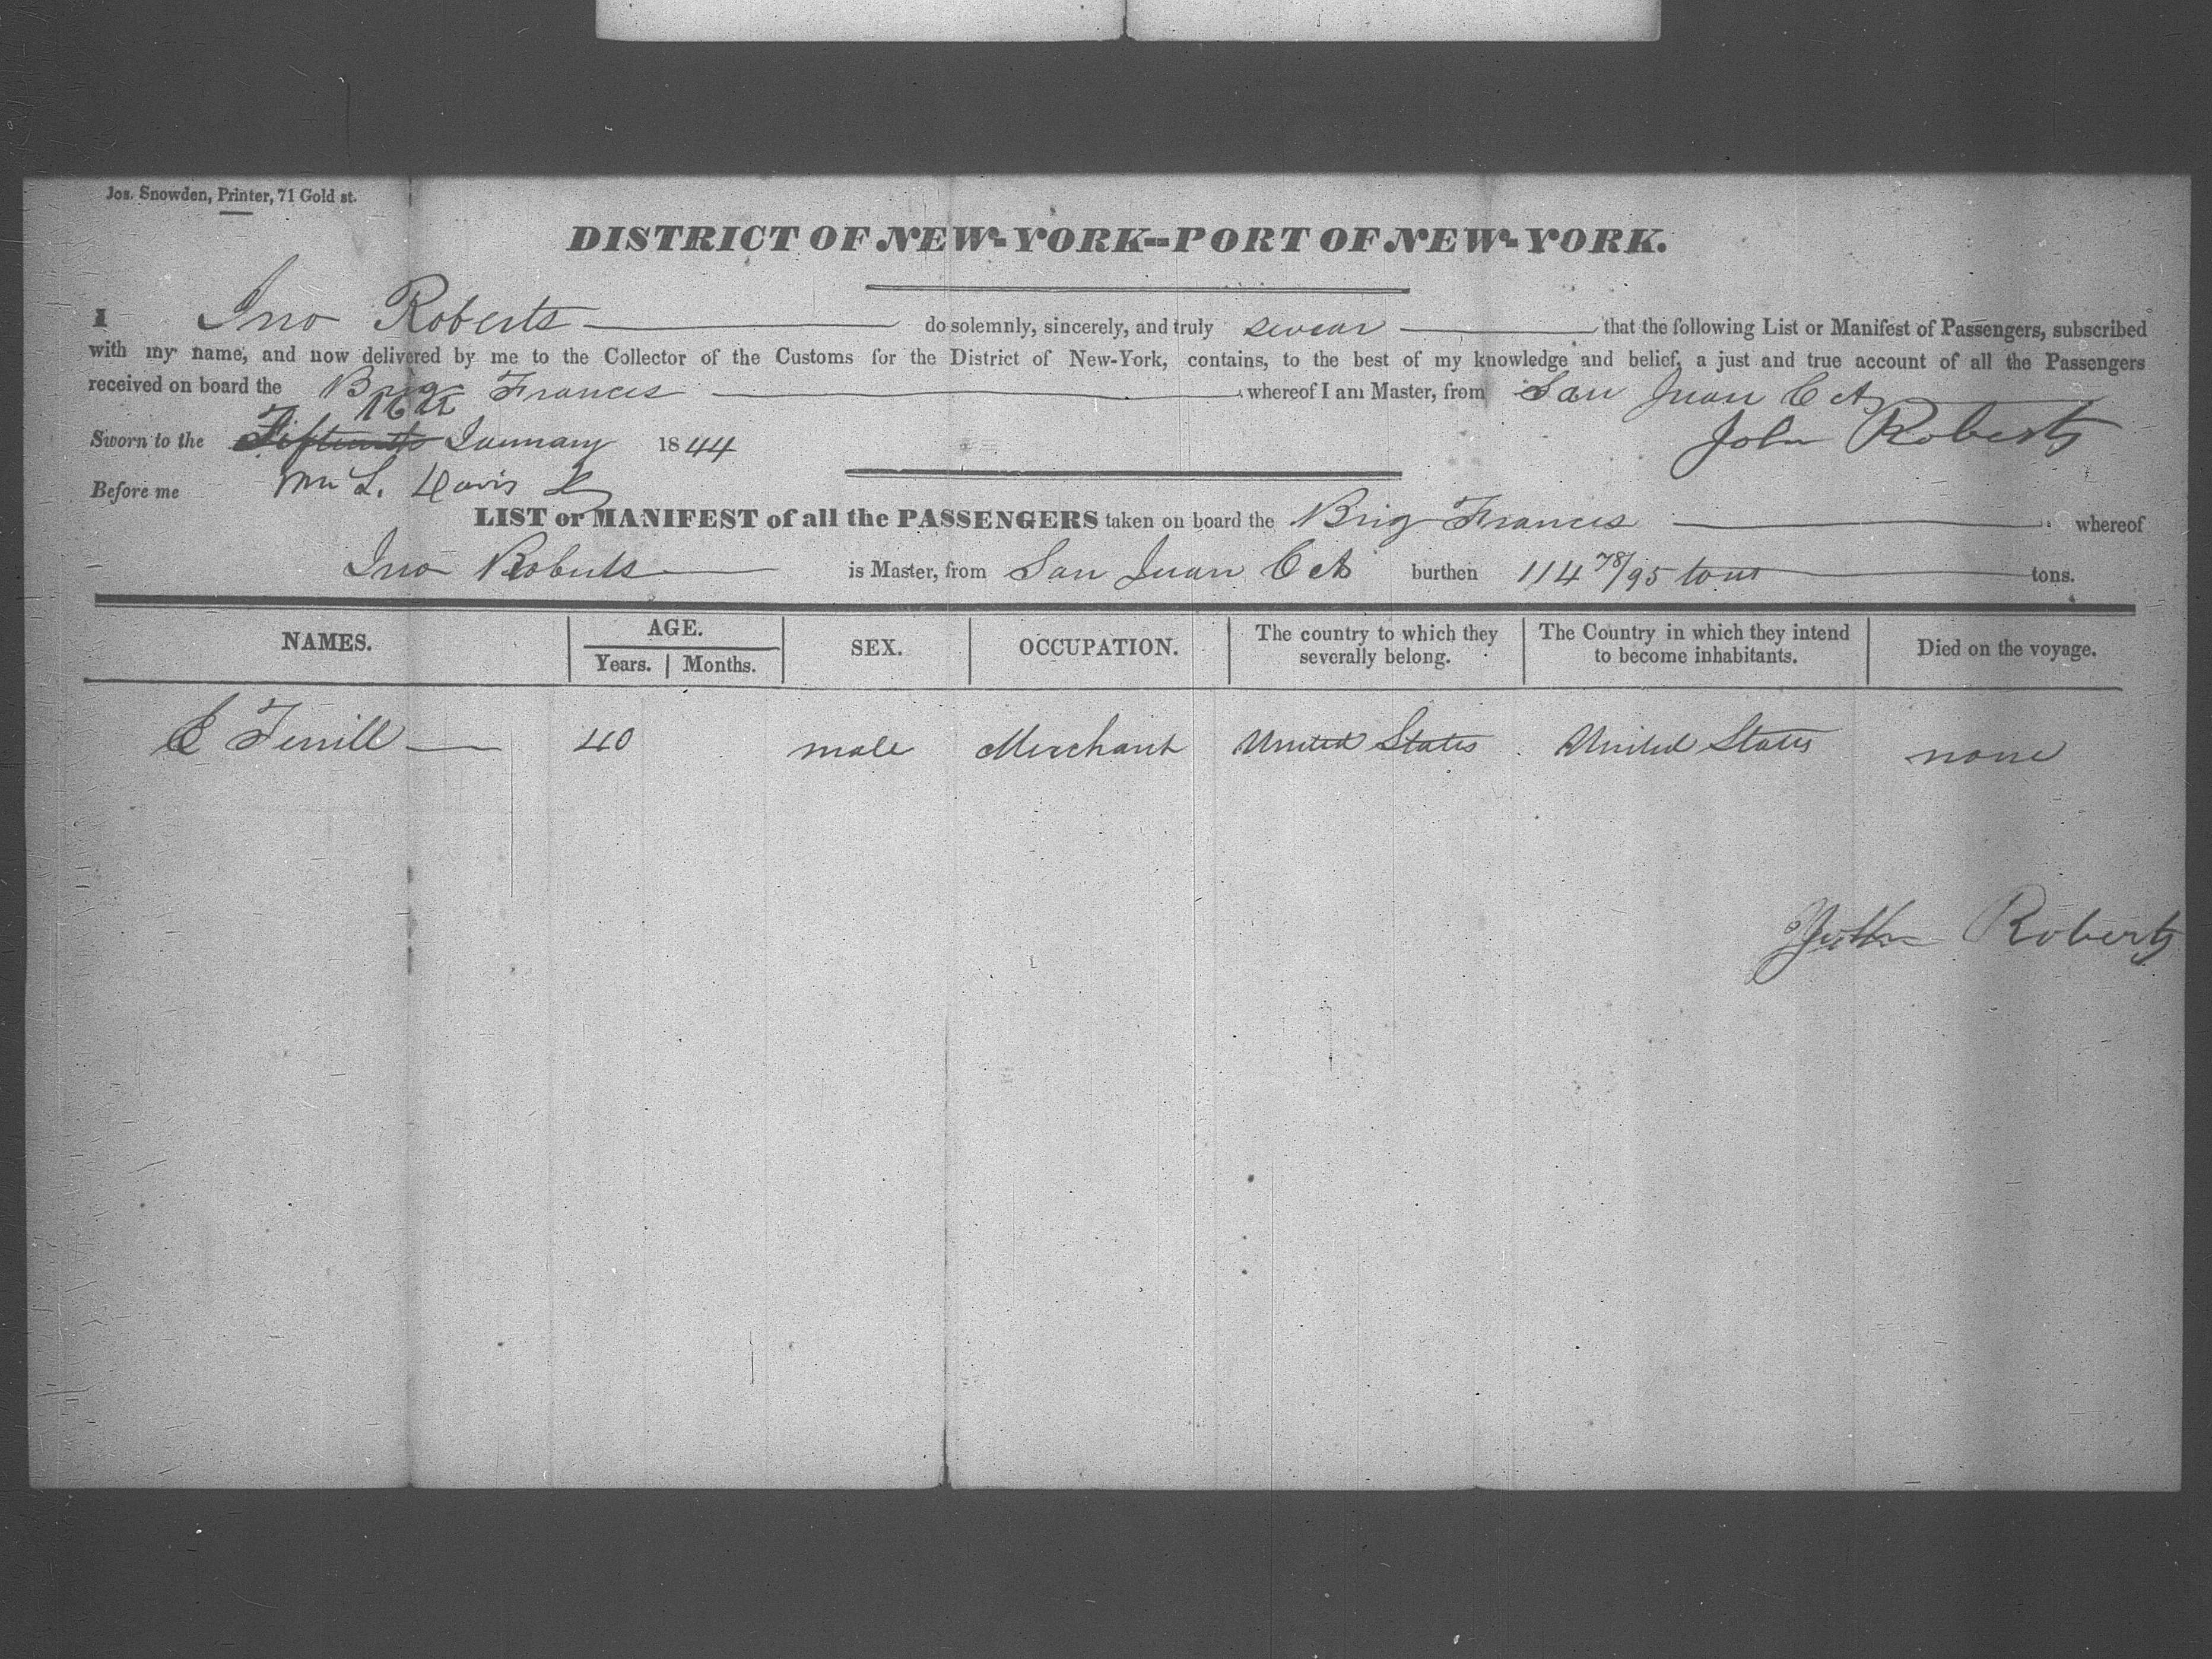 Jos. Snowden, Printer, 71 Gold st.
DISTRICT OF NEW-YORK--PORT OF NEW-YORK.
I Jno Roberts do solemnly, sincerely, and truly swear that the following List or Manifest of Passengers, subscribed
with my name, and now delivered by me to the Collector of the Customs for the District of New-York, contains, to the best of my knowledge and belief, a just and true account of all the Passengers
received on board the Brig Frances whereof I am Master, from San Juan C A
16th
Sworn to the Fifteenth January 1844 John Roberts
Before me L. Davis
LIST or MANIFEST of all the PASSENGERS taken on board the Brig Frances whereof
Jno Roberts is Master, from San Juan C A burthen 114 78/95 tons tons.
NAMES. AGE. Years. Months. SEX. OCCUPATION. The country to which they severally belong. The Country in which they intend to become inhabitants. Died on the voyage.
E Terrill 40 male Merchant United States United States none
Roberts